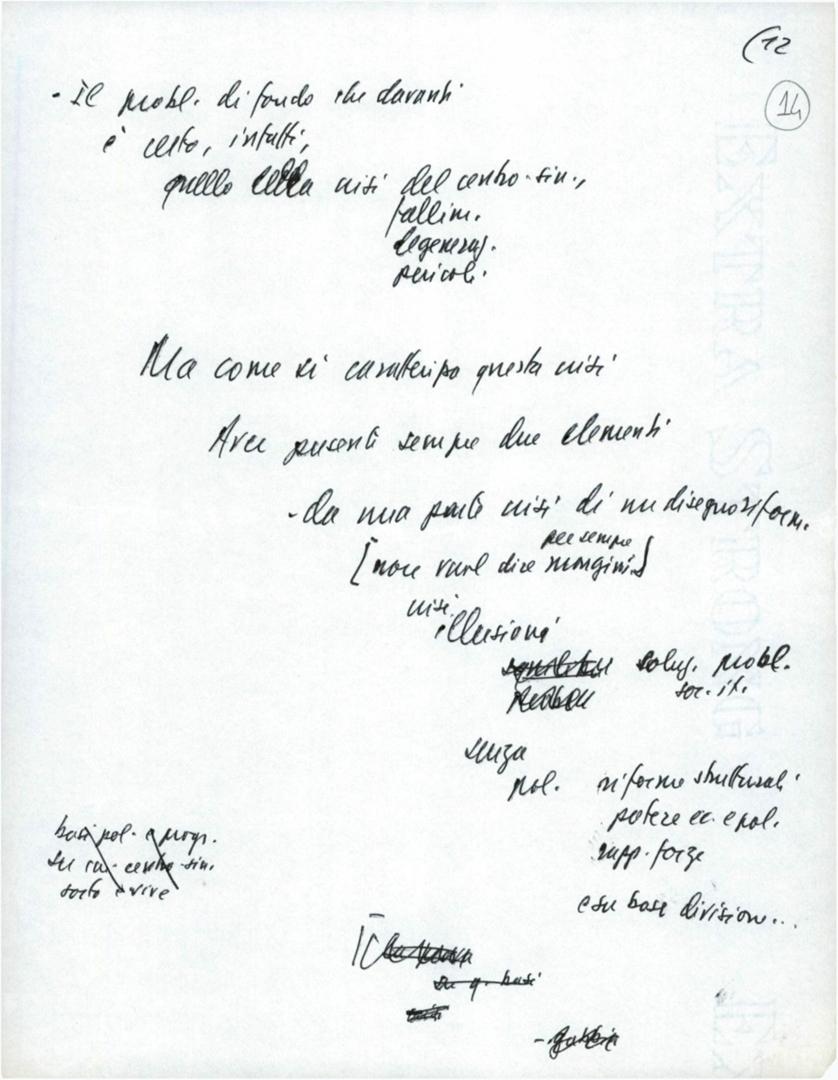 (12
14
- Il probl. di fondo che davanti
è certo, infatti,
quello della crisi del centro-sin.,
fallim.
degeneraz.
pericoli.
Ma come si caratterizza questa crisi
Aver presenti sempre due elementi
- da una parte crisi di un disegno riform.
per sempre
[non vuol dire margini]
crisi
illusioni
soluz. probl.
soc. it.
senza
pol. riforme strutturali
potere ec. e pol.
rapp. forze
basi pol. e progr.
su cui centro-sin.
sorto e vive
e su base divisione...
su q. basi